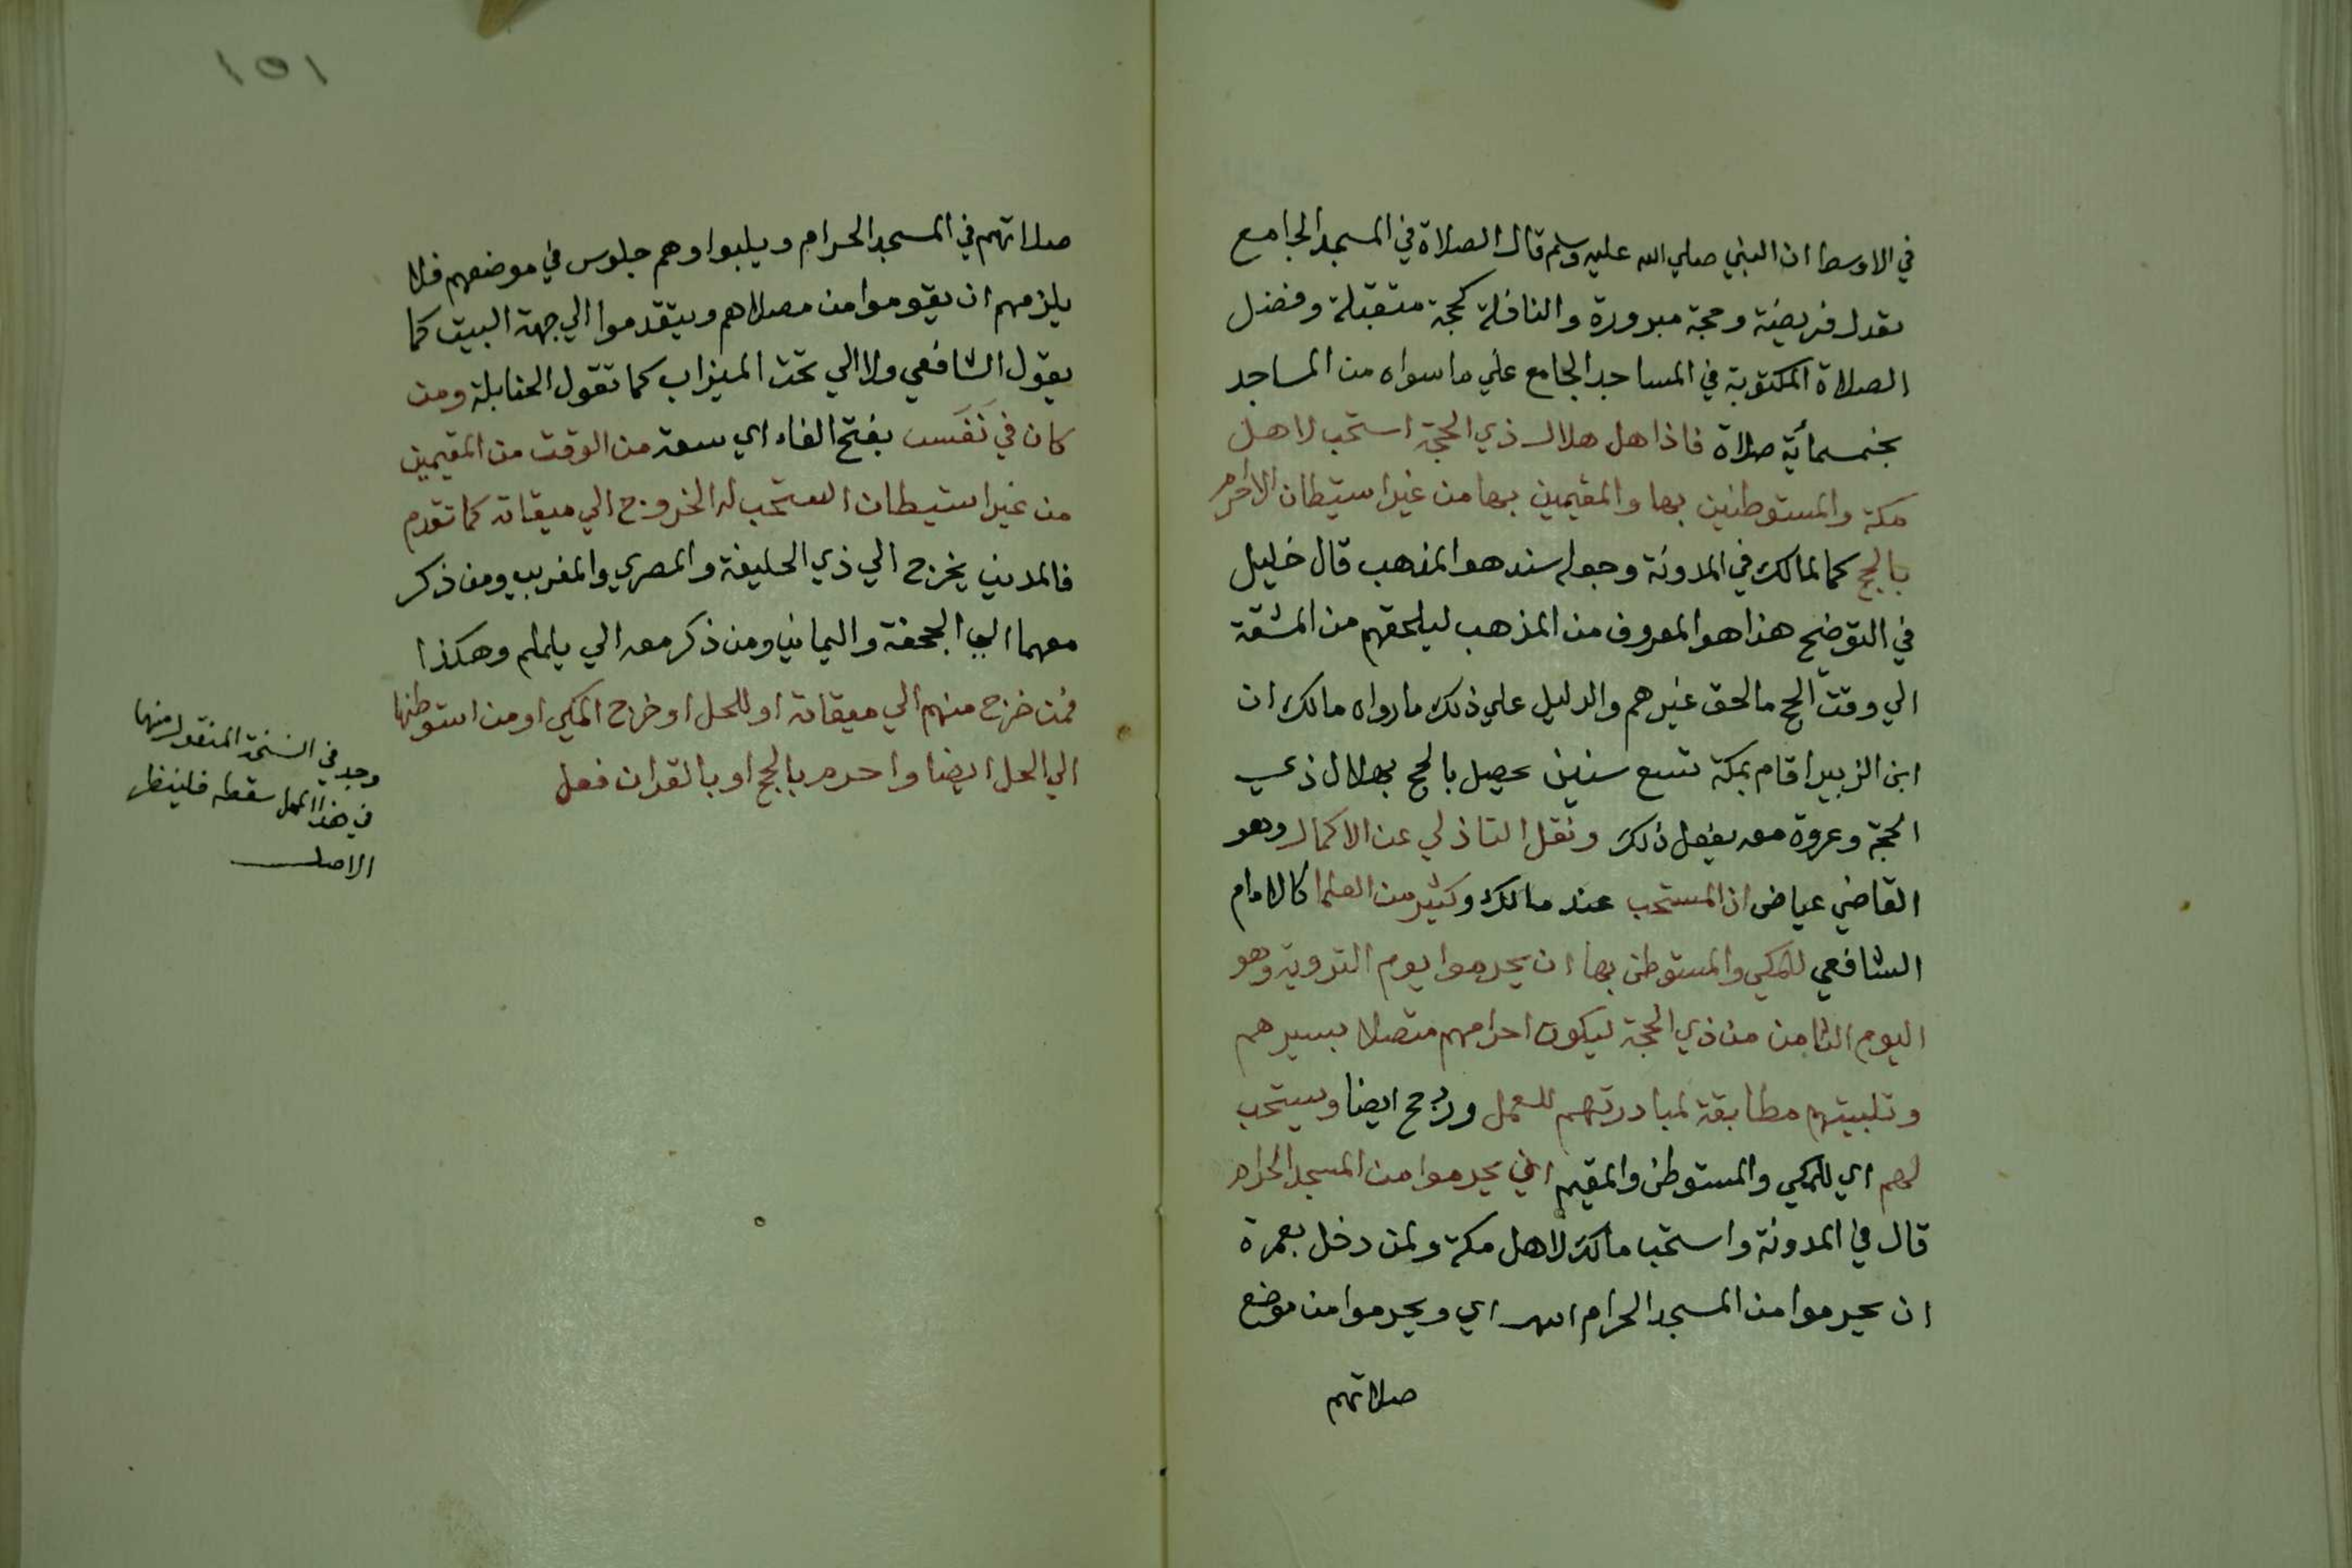 في الاوسط ان النبي صلي الله عليه وسلم قال الصلاة في المسجد الجامع
تعدل فريضة وحجة مبرورة والنافلة كحجة متقبلة وفضل
الصلاة المكتوبة في المساجد الجامع علي ما سواه من المساجد
بخمسمائة صلاة فاذا هل هلال ذي الحجة استحب لاهل
مكة والمستوطنين بها والمقيمين بها من غير استيطان الاحرام
بالحج كما لمالك في المدونة وجعله سند هو المذهب قال خليل
في التوضيح هذا هو المعروف من المذهب ليلحقهم من المشقة
الي وقت الحج ما لحق غيرهم والدليل علي ذلك ما رواه مالك ان
ابن الزبير اقام بمكة تسع سنين يهل بالحج بهلال ذي
الحجة وعروة معه يفعل ذلك ونقل التاذلي عن الاكمال وهو
القاضي عياض ان المستحب عند مالك وكثير من العلما كالامام
الشافعي للمكي والمستوطن بها ان يحرموا يوم التروية وهو
اليوم الثامن من ذي الحجة ليكون احرامهم متصلا بسيرهم
وتلبيتهم مطابقة لمبادرتهم للعمل ورجح ايضا ويستحب
لهم اي للمكي والمستوطن والمقيم ان يحرموا من المسجد الحرام
قال في المدونة واستحب مالك لاهل مكة ولمن دخل بعمرة
ان يحرموا من المسجد الحرام انتهى اي ويحرموا من موضع
صلاتهم
١٥١
صلاتهم في المسجد الحرام ويلبوا وهم جلوس في موضعهم فلا
يلزمهم ان يقوموا من مصلاهم ويتقدموا الي جهة البيت كما
يقول الشافعي ولا الي تحت الميزاب كما تقول الحنابلة ومن
كان في نَفَس بفتح الفاء اي سعة من الوقت من المقيمين
من غير استيطان استحب له الخروج الي ميقاته كما تقدم
فالمدني يخرج الي ذي الحليفة والمصري والمغربي ومن ذكر
معهما الي الجحفة واليماني ومن ذكر معه الي يلملم وهكذا
فمن خرج منهم الي ميقاته او للحل او خرج المكي او من استوطنها
الي الحل ايضا واحرم بالحج او بالقران فعل
وجد في النسخة المنقول منها
في هذا المحل سقط فلينظر
الاصل